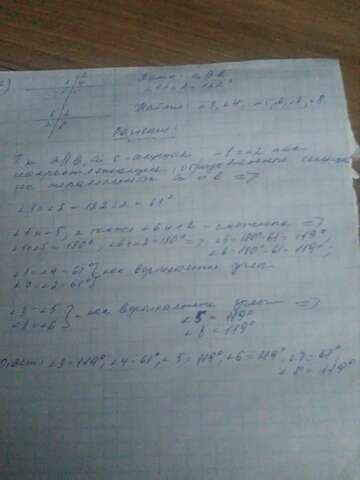 Дано: a||b
∠1+∠2=122°
Найти: ∠3, ∠4, ∠5, ∠6, ∠7, ∠8
Решение:
Т.к a||b, а c - секущая ∠1=∠2 как
на параллельных a и b =>
∠1=∠2=122:2=61°
∠1 и ∠5, а также ∠6 и ∠2 - смежные =>
∠1+∠5=180°, ∠6+∠2=180° => ∠5=180°-61=119°,
∠6=180°-61=119°;
∠1=∠4=61° как вертикальные углы
∠2=∠7=61°
∠3=∠5 - как вертикальные углы =>
∠8=∠6 ∠5=119°
∠8=119°
Ответ: ∠3=119°, ∠4=61°, ∠5=119°, ∠6=119°, ∠7=61°,
∠8=119°